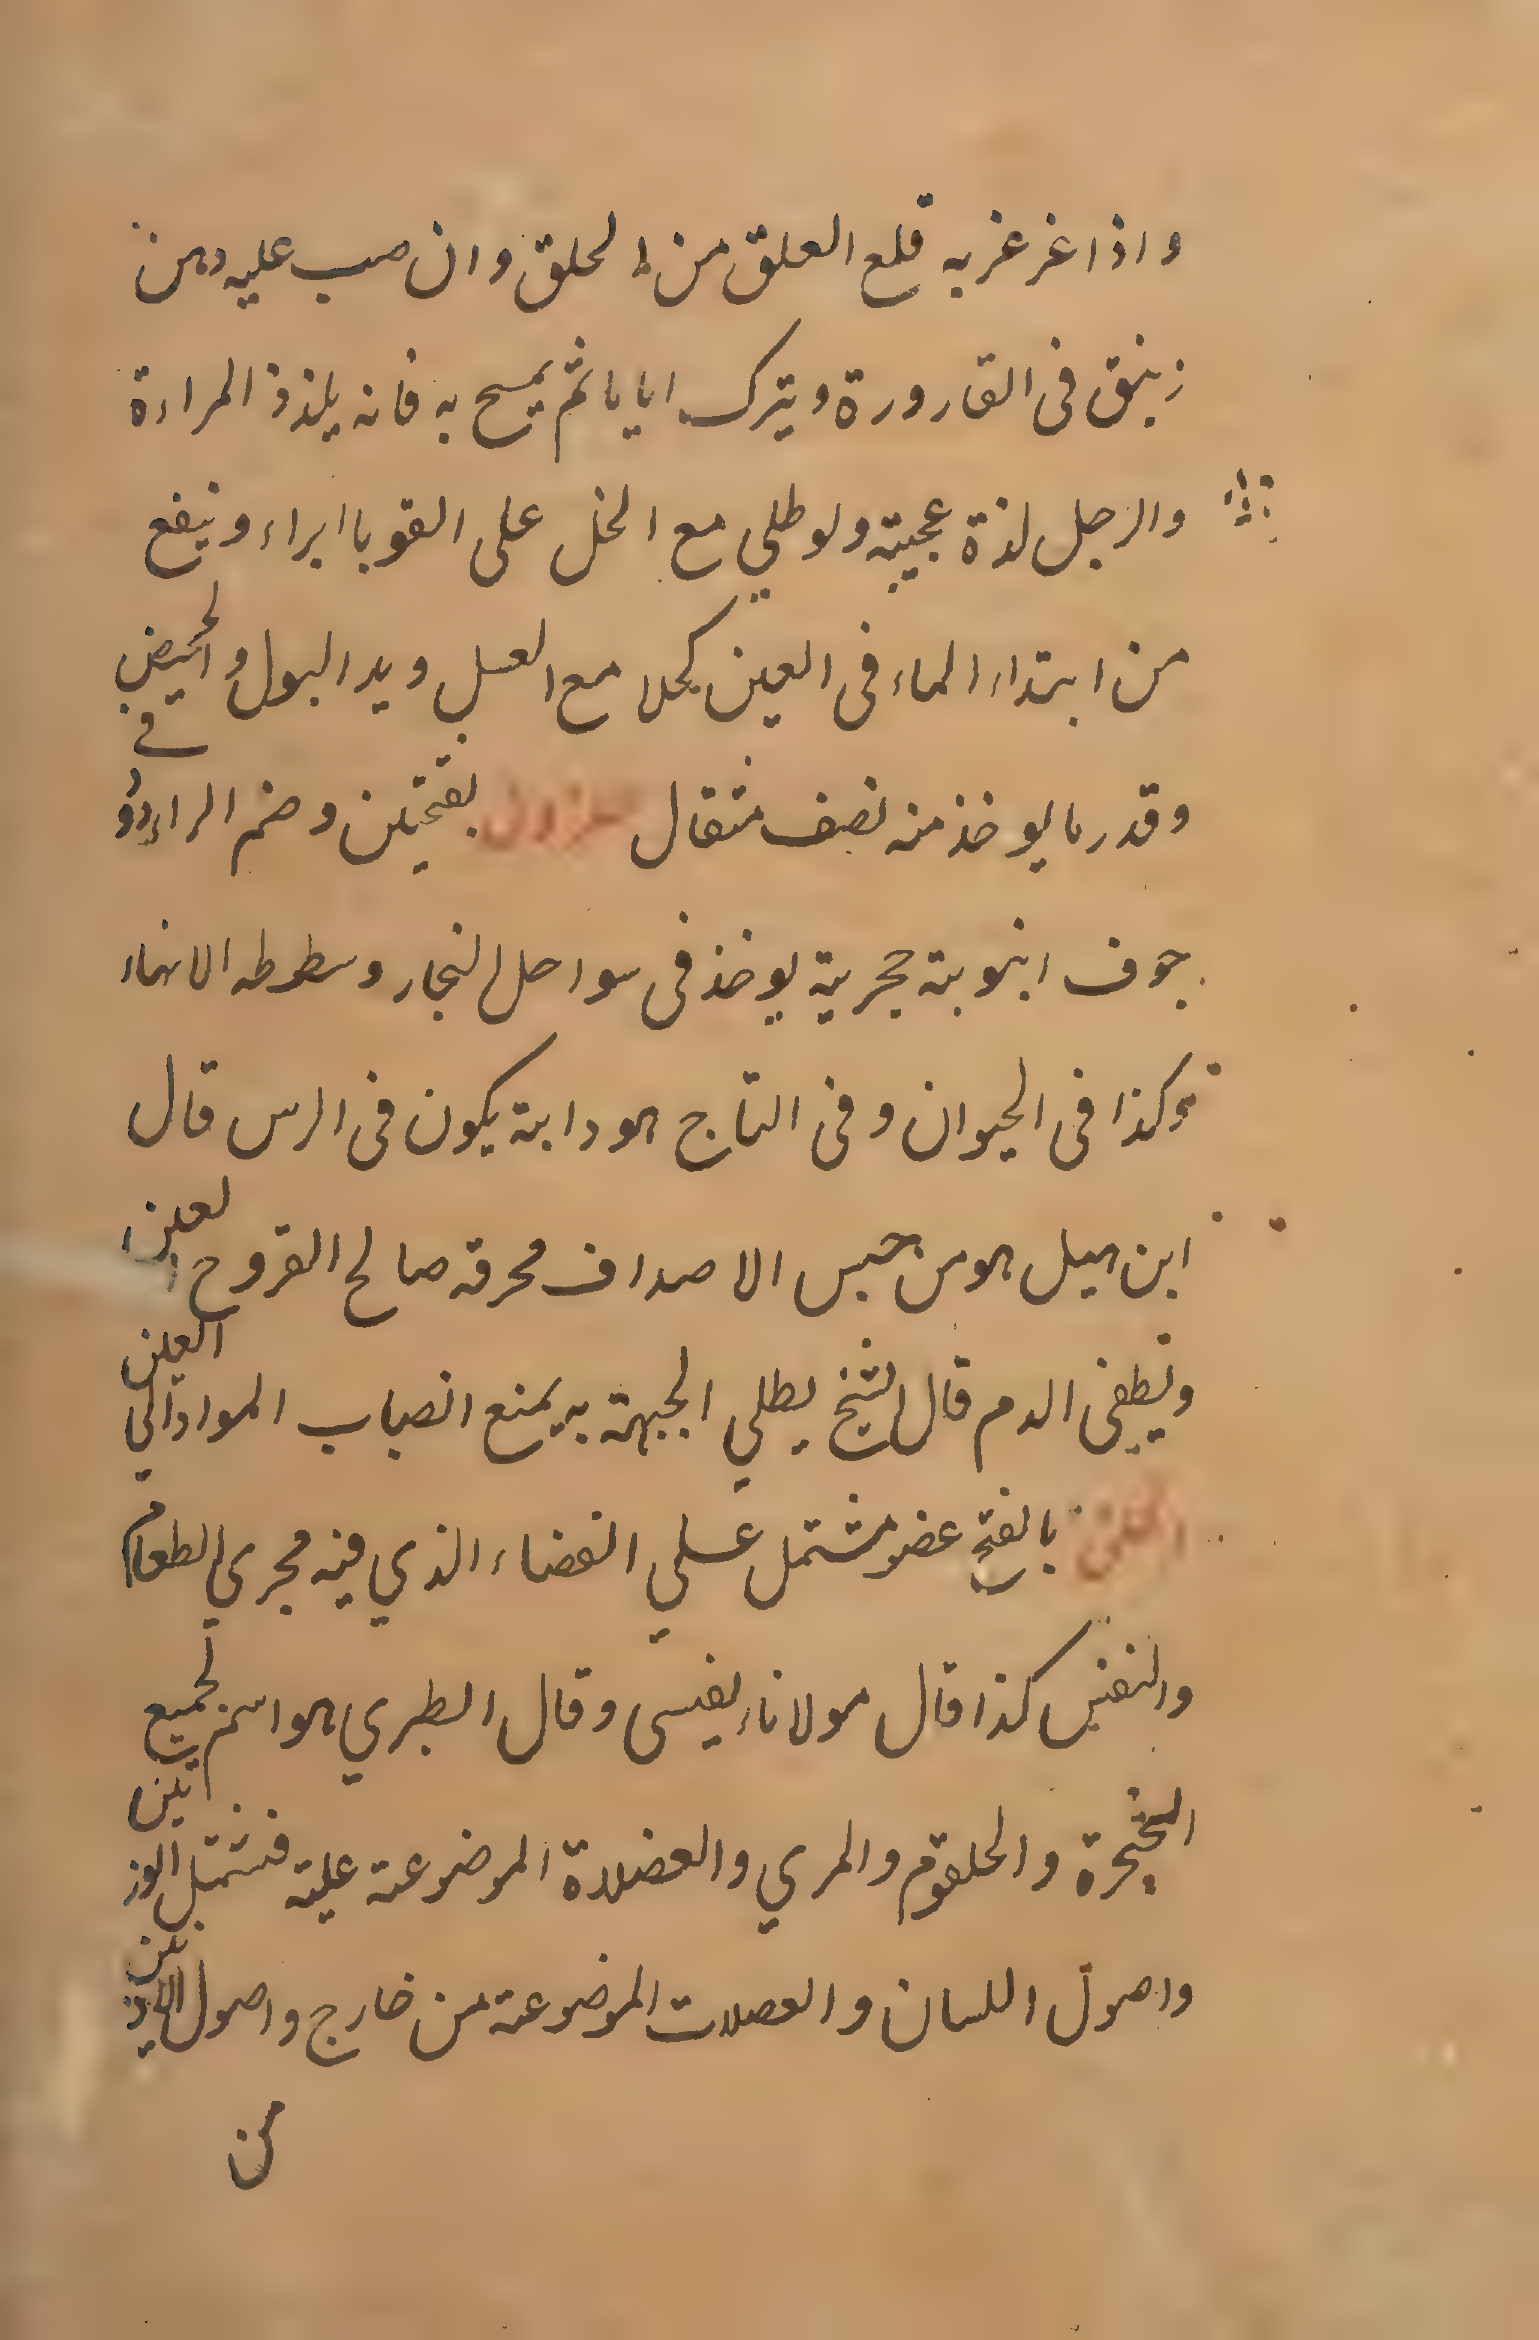 واذا غرغر به قلع العلق من الحلق وان صب عليه دهن
زنبق فى القارورة ويترك اياما ثم يمسح به فانه يلذذ المراءة
والرجل لذة عجيبة ولو طلي مع الخل على القوبا ابراء وينفع
من ابتداء الماء فى العين كحلا مع العسل ويدر البول والحيض
وقدر ما يوخذ منه نصف مثقال حلزون بفتحتين وضم الراء دود فى
جوف انبوبة حجرية يوخذ فى سواحل البحار وسطوطه الانهاء
وكذا فى الحيوان وفى التاج هو دابة يكون فى الراس قال
ابن هبل هو من جنس الاصداف محرقه صالح القروح العين
ويطفى الدم قال الشيخ يطلي الجبهة به يمنع انصباب المواد الى العين
الحلق بالفتح عضو مشتمل على الفضاء الذي فيه مجري الطعام
والنفس كذا قال مولانا نفيسى وقال الطبري هو اسم لجميع
الحنجرة والحلقوم والمري والعضلاة الموضوعة عليه فيشتمل اللوزتين
واصول اللسان والعضلات الموضوعة من خارج واصول الاذنين
من